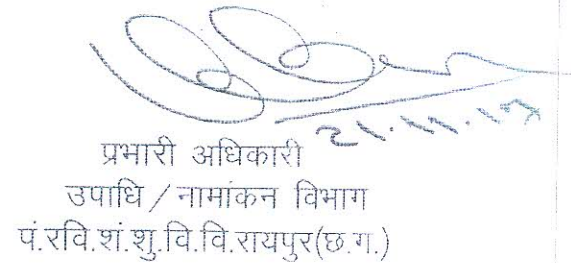 प्रभारी अधिकारी
उपाधि / नामांकन विभाग
पं.रवि.शं.शु.वि.वि.रायपुर(छ.ग.)